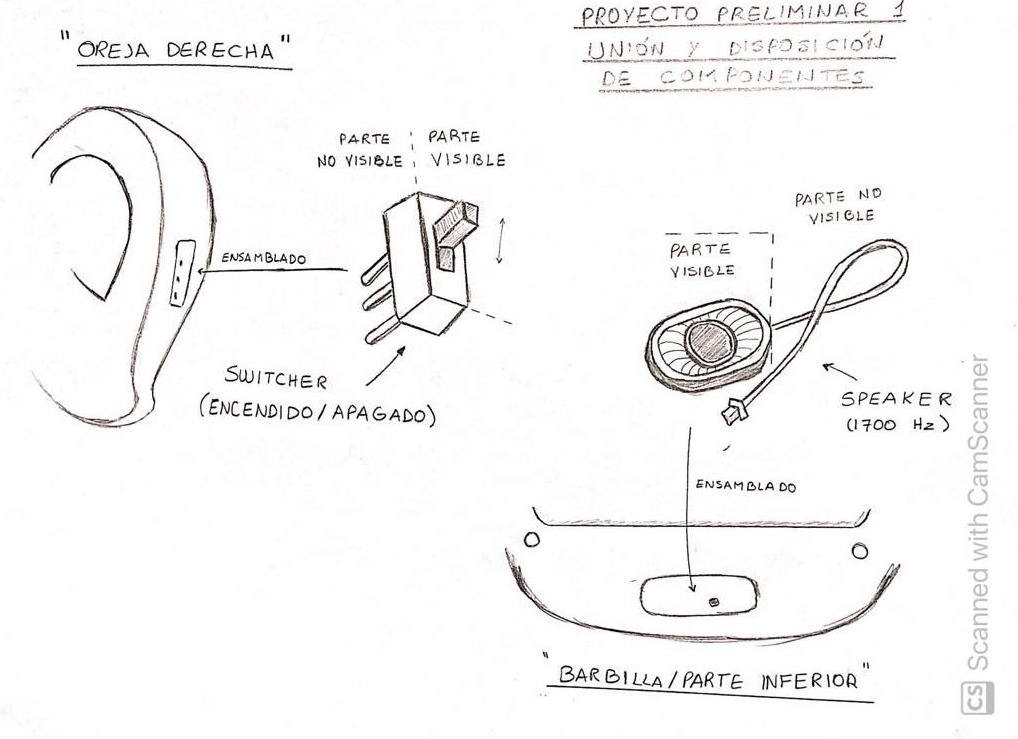 "OREJA DERECHA"
PROYECTO PRELIMINAR 1
UNIÓN Y DISPOSICIÓN
DE COMPONENTES
PARTE
NO VISIBLE
PARTE
VISIBLE
ENSAMBLADO
SWITCHER
(ENCENDIDO/APAGADO)
PARTE NO
VISIBLE
PARTE
VISIBLE
SPEAKER
(1700 Hz)
ENSAMBLADO
"BARBILLA/PARTE INFERIOR"
CS Scanned with CamScanner